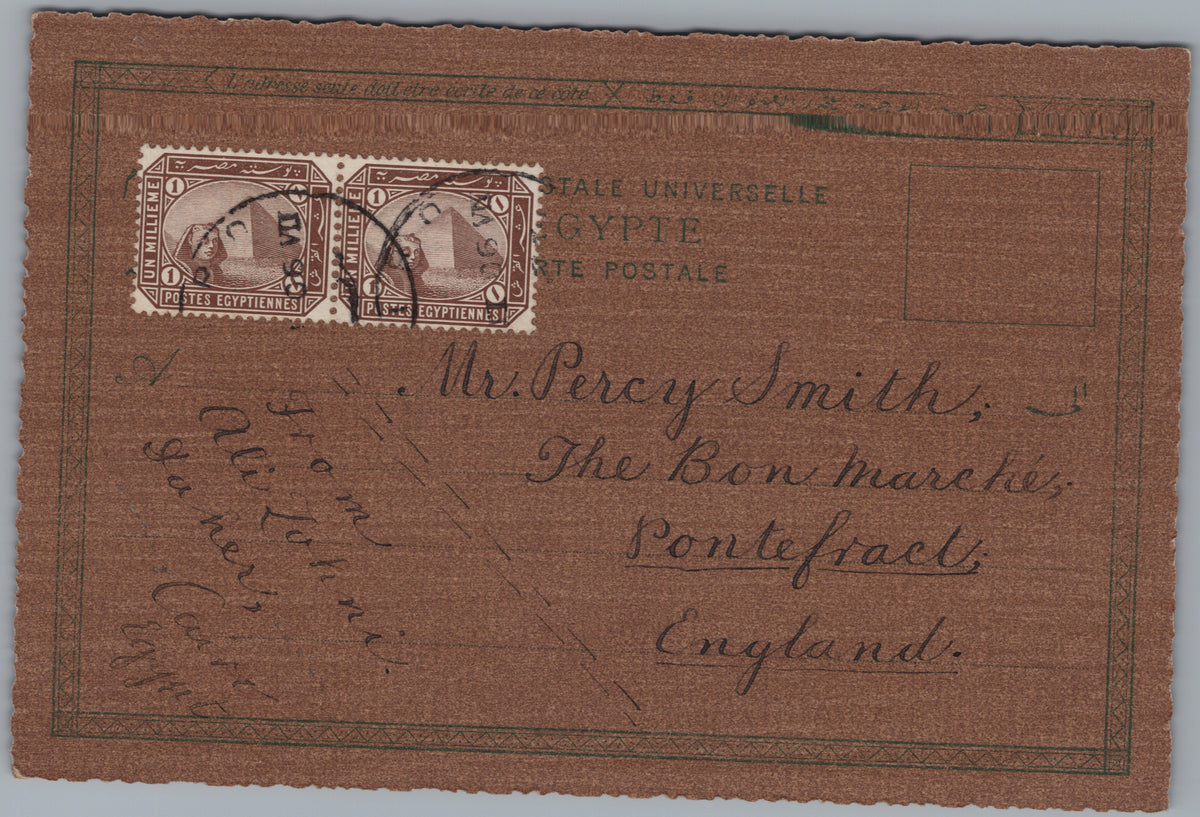 L'adresse seule doit être écrite de ce côté
STALE UNIVERSELLE
EGYPTE
RTE POSTALE
بوستة مصرية
UN MILLIEME
1
1
POSTES EGYPTIENNES
بوستة مصرية
UN MILLIEME
1
1
POSTES EGYPTIENNES
VII 06
VII 06
Mr. Percy Smith,
The Bon Marché,
Pontefract,
England.
From
Ali
Cairo
Egypt